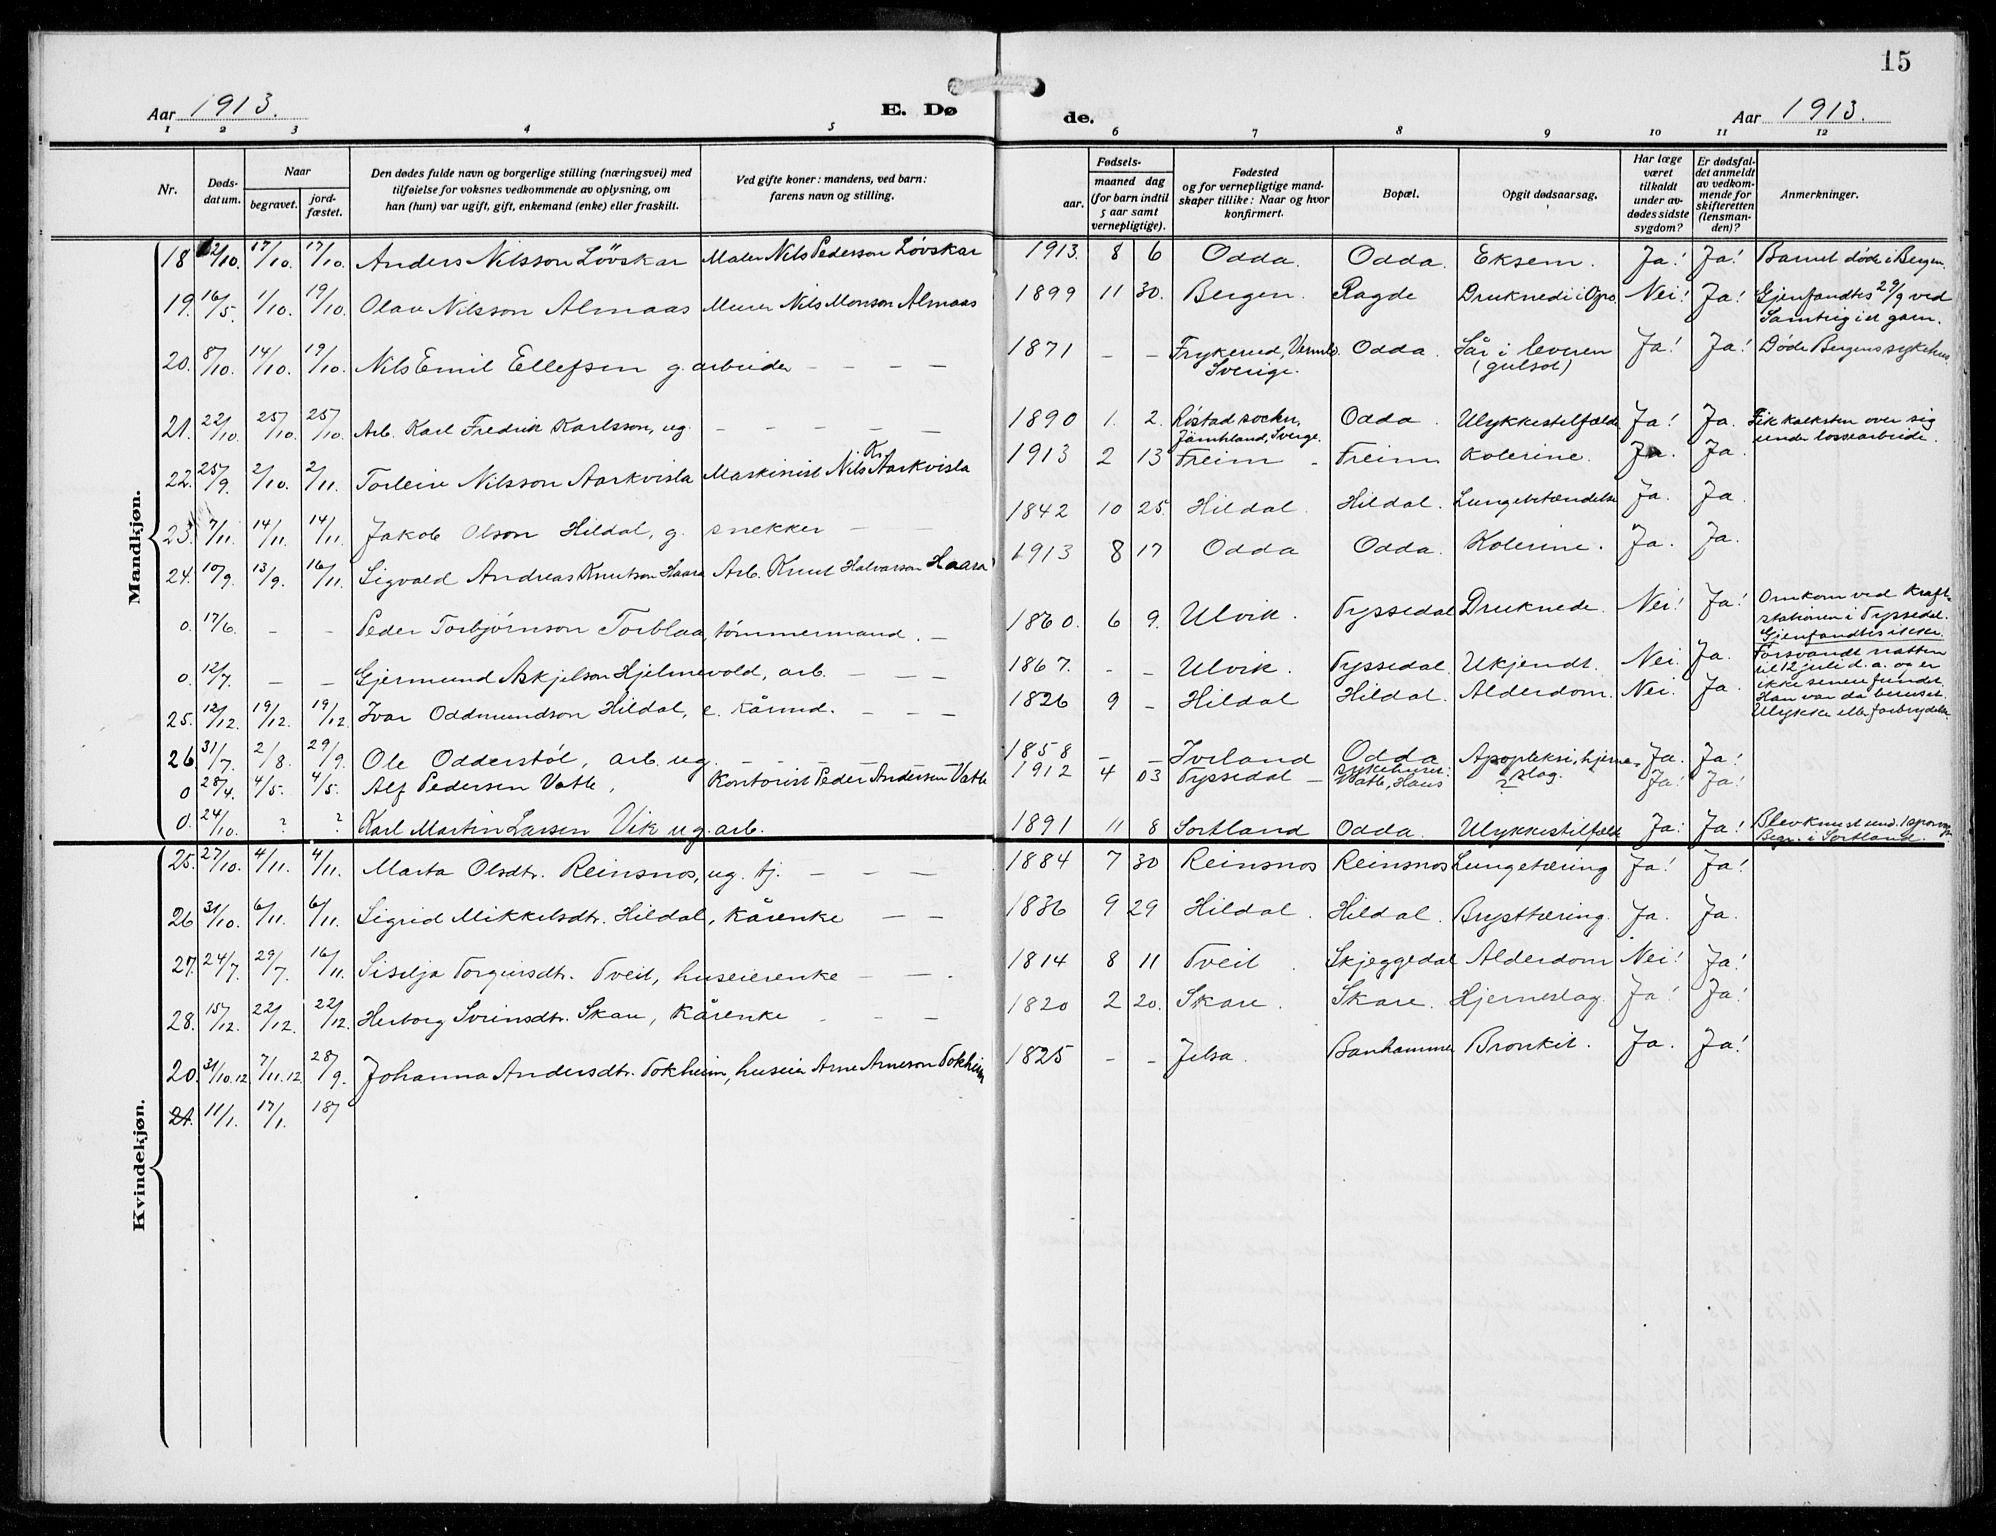 15
Aar 1913.
E. Dø
de.
Aar 1913.
1 2 3 4 5 6 7 8 9 10 11 12
Nr.
Døds-
datum.
Naar
begravet.
jord-
fæstet.
Den dødes fulde navn og borgerlige stilling (næringsvei) med
tilføielse for voksnes vedkommende av oplysning, om
han (hun) var ugift, gift, enkemand (enke) eller fraskilt.
Ved gifte koner: mandens, ved barn:
farens navn og stilling.
Fødsels-
aar.
maaned dag
(for barn indtil
5 aar samt
vernepligtige).
Fødested
og for vernepligtige mand-
skaper tillike: Naar og hvor
konfirmert.
Bopæl.
Opgit dødsaarsag.
Har læge
været
tilkaldt
under av-
dødes sidste
sygdom?
Er dødsfal-
det anmeldt
av vedkom-
mende for
skifteretten
(lensman-
den)?
Anmerkninger.
Mandkjøn.
18 12/10. 17/10. 17/10. Anders Nilsson Løvskar Maler Nils Pederson Løvskar 1913. 8 6 Odda. Odda. Eksem. Ja! Ja! Barnet døde i Bergen.
19. 16/5. 1/10. 19/10. Olav Nilsson Almaas Murer Nils Monson Almaas 1899 11 30. Bergen. Ragde Druknede i Opo. Nei! Ja! Gjenfandtes 29/9 ved
i et garn.
20. 8/10. 14/10. 19/10. Nils Emil Ellefsen g. arbeider — — — — 1871 — — Frykerud, Verml. Odda. Sår i leveren Ja! Ja! Døde Bergens sykehus
Sverige. (gulsot)
21. 22/10. 25/10. 25/10. Arb. Karl Fredrik Karlsson, ug. — — — — — 1890 1. 2. Röstad socken, Odda. Ulykkestilfælde Ja! Ja. Fik kalksten over sig
Jämtland, Sverge. under lossearbeide.
22. 25/9. 2/10. 2/11. Torleiv Nilsson Aarkvisla Maskinist Nils K. Aarkvisla 1913 2 13 Freim — Freim Kolerine. Ja. Ja.
23. 7/11. 14/11. 14/11. Jakob Olson Hildal, g. snekker — — 1842 10 25. Hildal. Hildal. Lungebetændelse Ja. Ja.
24. 10/9. 13/9. 16/11. Sigvald Andreas Knutson Haara Arb. Knut Halvarson Haara 1913 8 17 Odda Odda. Kolerine. Ja. Ja.
0. 17/6. — — Peder Torbjørnson Torblaa, tømmermand. — 1860. 6 9. Ulvik. Tyssedal Druknede. Nei! Ja! Omkom ved Kraft-
stationen i Tyssedal.
Gjenfandtes ikke.
0. 12/7. — — Gjermund Askjelson Hjelmevold, arb. — — — 1867. — — Ulvik. Tyssedal Ukjendt. Nei. Ja. Forsvandt natten
til 12 juli d. a. og er
ikke senere fundet.
Han var da beruset.
Ulykke eller forbrydelse.
25. 12/12. 19/12. 19/12. Ivar Oddmundson Hildal, e. kårmd. — — — 1826 9 — Hildal Hildal. Alderdom. Nei. Ja.
26 31/7. 2/8. 29/9. Ole Odderstøl, arb. ug. — — — — 1858 — — Iveland Odda Apopleksi, hjerne- Ja. Ja!
sykehuset. slag.
0 28/4. 4/5. 4/5. Alf Pedersen Vatle, Kontorist Peder Andersen Vatle 1912 4 03 Tyssedal — Vatle, Haus ? Ja! Ja!
0. 24/10. ? ? Karl Martin Larsen Vik ug. arb. 1891 11 8 Sortland Odda. Ulykkestilfælde Ja. Ja! Blev knust und.
Begr. i Sortland.
Kvindekjøn.
25. 27/10. 4/11. 4/11. Marta Olsdtr. Reinsnos, ug. tj. — — — 1884 7 30 Reinsnos Reinsnos Lungetæring Ja! Ja!
26 31/10. 6/11. 6/11. Sigrid Mikkelsdtr. Hildal, kårenke — — 1836 9 29 Hildal. Hildal. Brysttæring. Ja. Ja.
27. 24/7. 29/7. 16/11. Sisilja Torgeirsdtr. Tveit, huseierenke — — . 1814 8 11 Tveit . Skjeggedal Alderdom Nei! Ja!
28. 15/12. 22/12. 22/12. Herborg Sveinsdtr. Skare, kårenke — — 1820 2 20. Skare. Skare. Hjerneslag. Ja! Ja!
20. 31/10.12 7/11.12. 28/9. Johanna Andersdtr. Tokheim, huseier Arne Arneson Tokheim 1825 — — Jelsa. Banhammer Bronkit. Ja. Ja!
21. 11/1. 17/1. 187